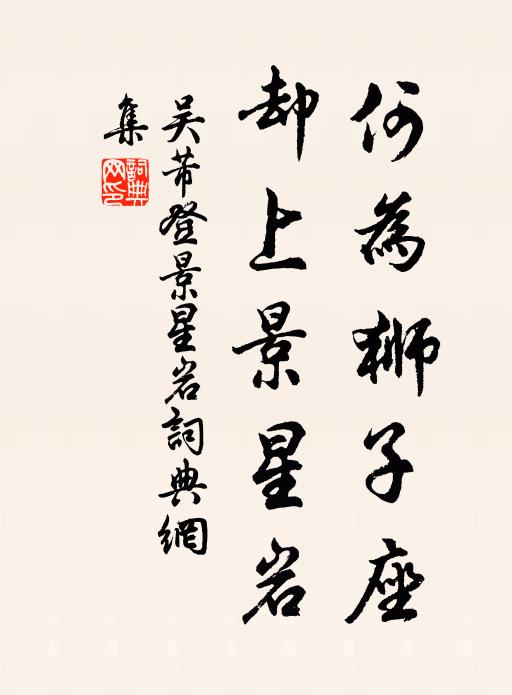 何為獅子座
却上景星岩
吴芾登景星岩詞典網
集
詞典網印